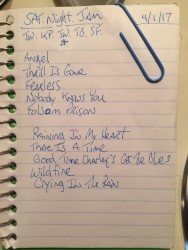 SAT. Night. Jam 4/1/17
TW. KP. TW. TB. SF.
Angel
Thrill Is Gone
Fearless
Nobody Knows You
Folsom Prison
Raining In My Heart
There Is A Time
Good Time Charley's Got The Blues
Wildfire
Crying In The Rain